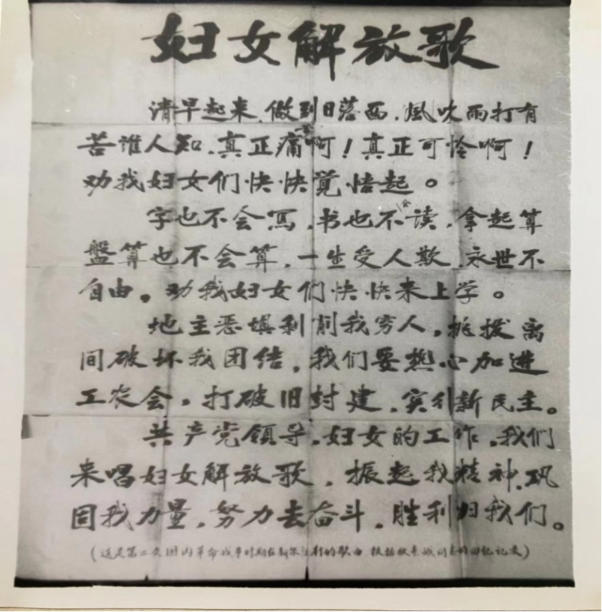 妇女解放歌
清早起来,做到日落西,風吹雨打有
苦谁人知,真正痛苦啊!真正可怜啊!
劝我妇女们快快覚悟起。
字也不会写,书也不会读,拿起算
盤算也不会算,一生受人欺,永世不
自由。劝我妇女们快快来上学。
地主恶填利削我穷人,挑拨离
间破坏我团结,我们要热心加进
工农会。打破旧封建,实行新民主。
共产党领导,妇女的工作,我们
来唱妇女解放歌,振起我精神,巩
固我力量,努力去奋斗,胜利归我们。
(这是第二次国内革命战争时期在